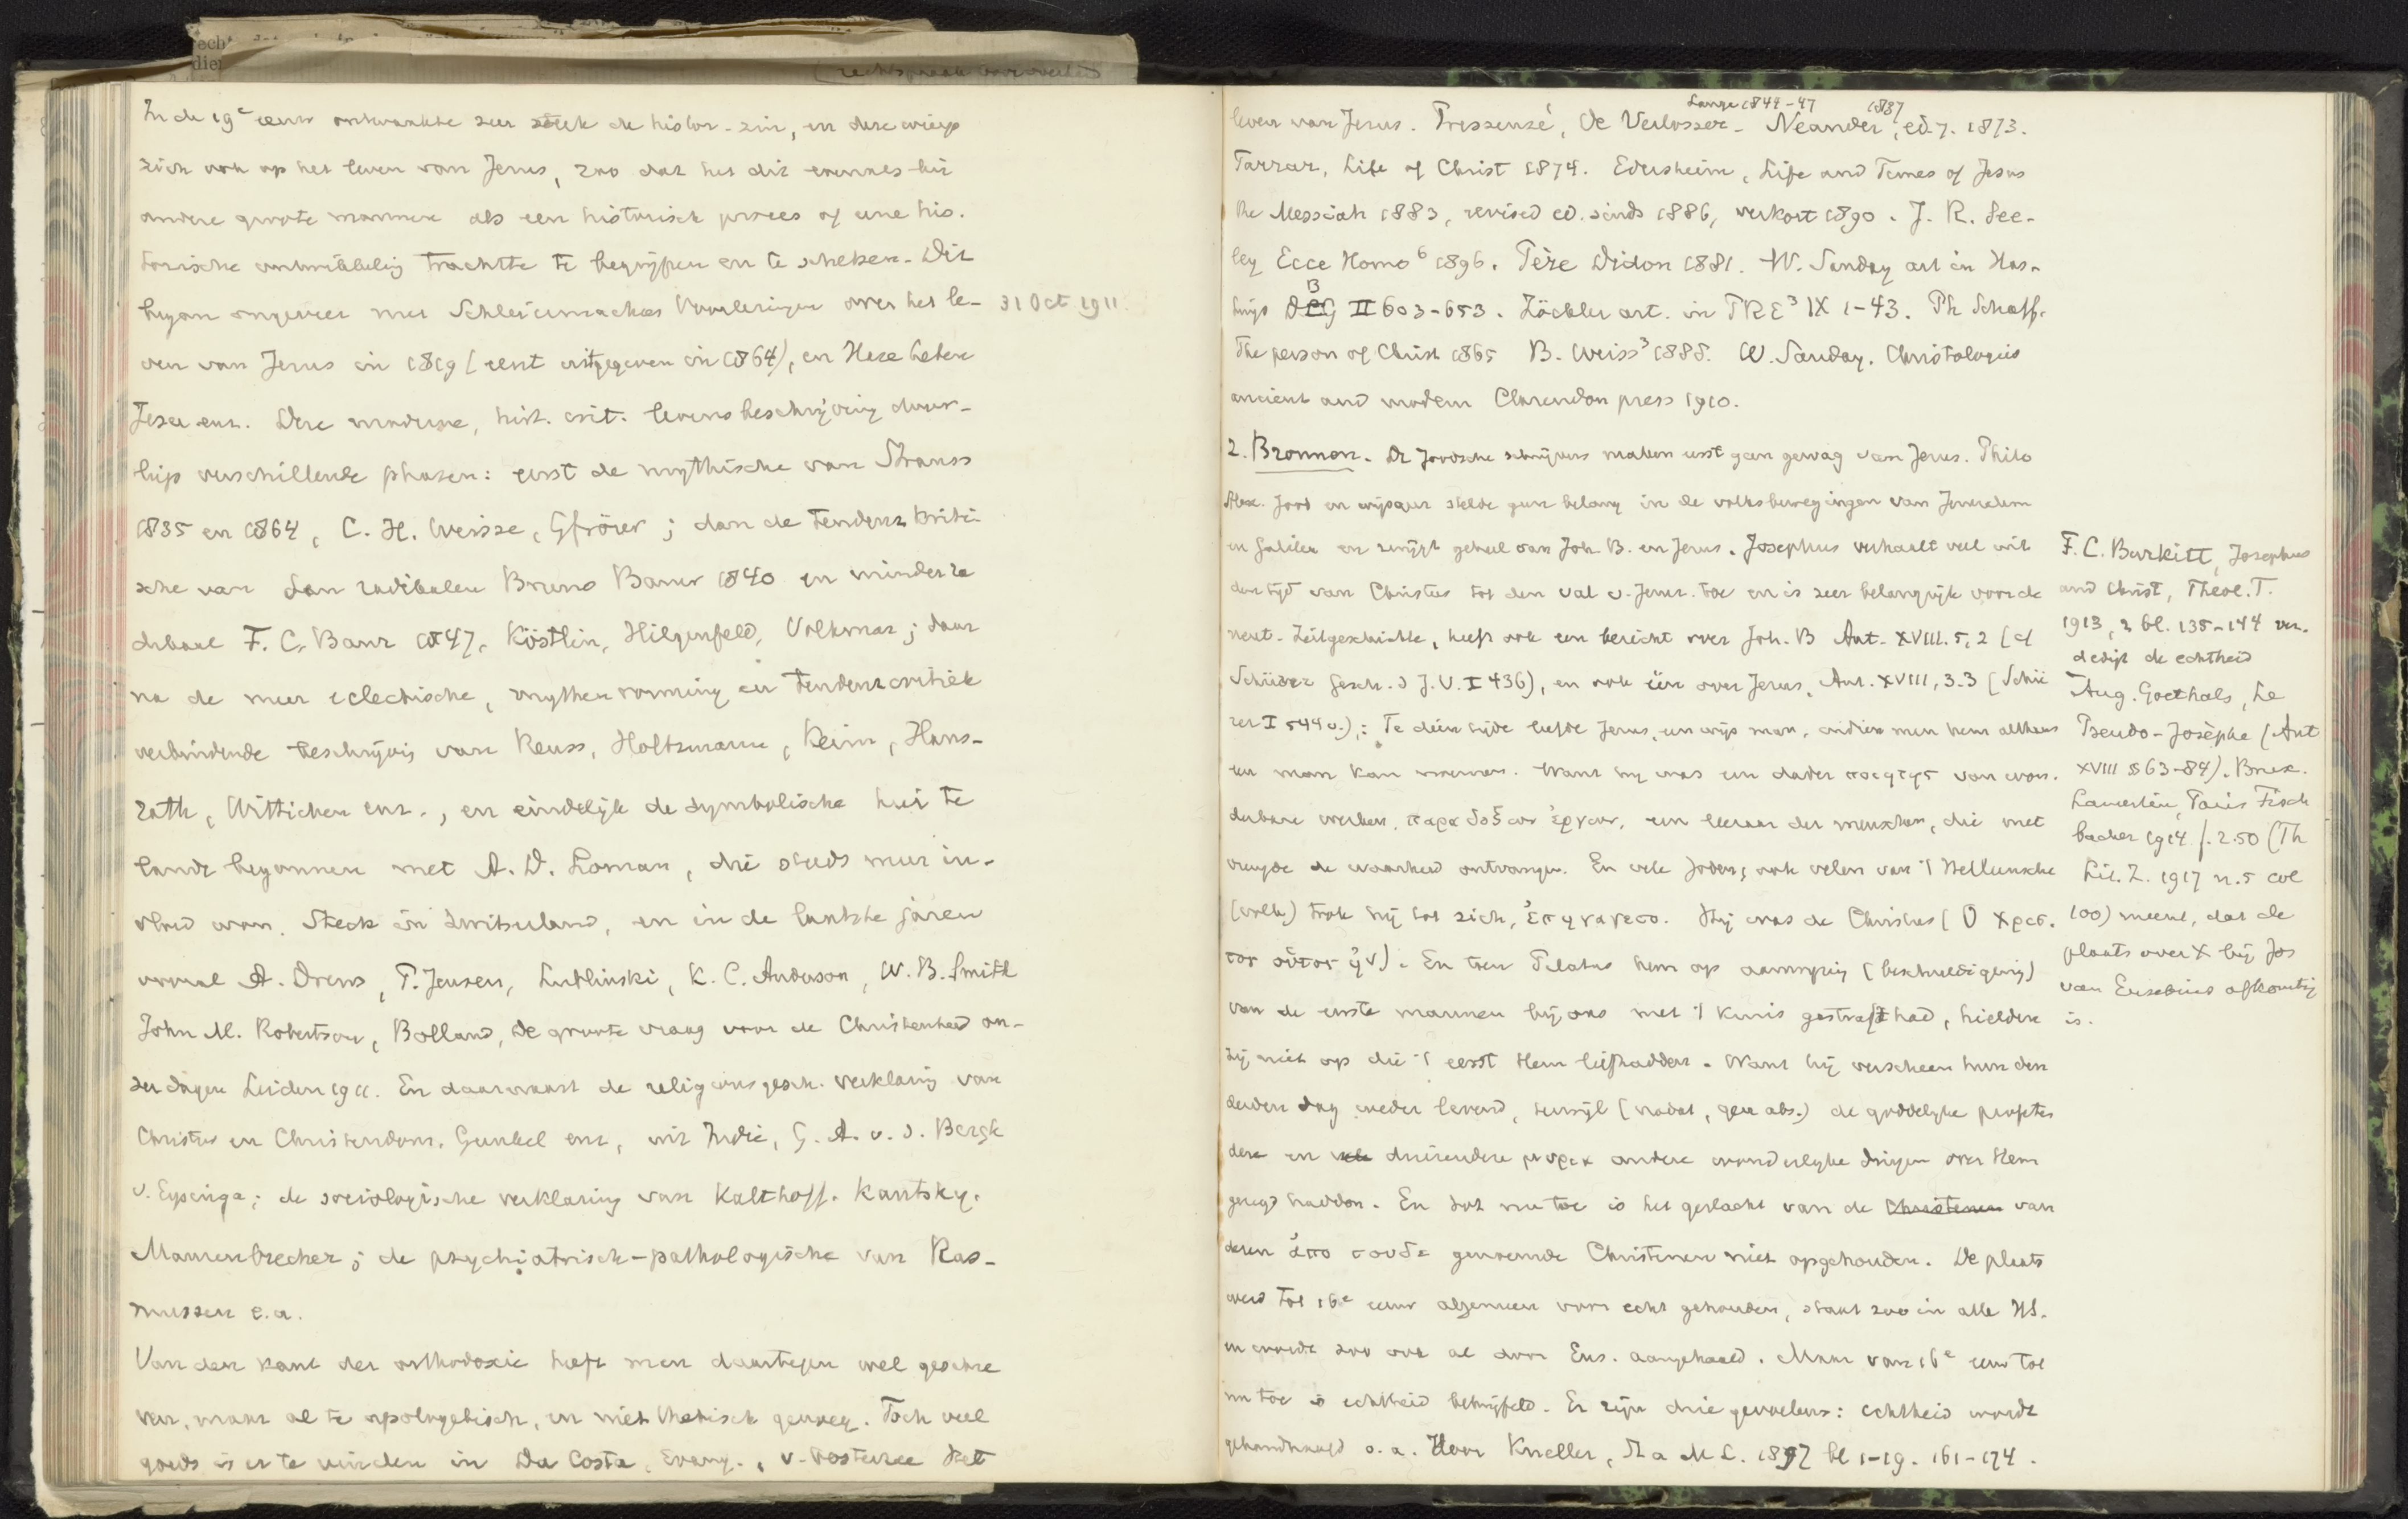 In de 19e eeuw ontwaakte zeer sterk de histor. zin, en deze wierp
zich ook op het leven van Jezus, zoo dat het dit evenals bij
andere groote mannen als een historisch proces of eene his-
torische ontwikkeling trachtte te begrijpen en te schetsen. Dit
begon ongeveer met Schleiermachers Voorlezingen over het le-
31 Oct 1911
ven van Jezus in 1819 (eerst uitgegeven in 1864), en Hase Leben
Jesu enz. Deze moderne, hist. crit. levensbeschrijving door-
liep verschillende phasen: eerst de mythische van Strauss
1835 en 1864, C. H. Weisse, Gfrörer; dan de tendenz kriti-
sche van den radikalen Bruno Bauer 1840 en minder ra
dicaal F. C. Baur 1847, Köstlin, Hilgenfeld, Volkmar; daar
na de meer eclectische, mythenvorming en tendenzcritiek
verbindende beschrijvig van Reuss, Holtzmann, Keim, Haus-
rath, Wittichen enz., en eindelijk de symbolische hier te
lande begonnen met A. D. Loman, die steeds meer in-
vloed won. Steck in Zwitserland, en in de laatste jaren
vooral A. Drews, P. Jensen, Lublinski, K. C. Anderson, W. B. Smith
John M. Robertson, Bolland, De groote vraag voor de Christenheid on-
zer dagen Leiden 1911. En daarnaast de religionsgesch. verklaring van
Christus en Christendom, Gunkel enz, uit Indie, G. A. v. d. Bergh
v. Eysinga; de sociologische verklaring van Kalthoff. Kautsky.
Maurenbrecher; de psychiatrisch-pathologische van Ras-
mussen e.a.
Van den kant der orthodoxie heeft men daartegen wel geschre
ven, maar al te apologetisch, en niet thetisch genoeg. Toch veel
goeds is er te vinden in Da Costa, Evang., v. Oosterzee Het
Lange 1844-47 1837
leven van Jezus. Pressensé, De Verlosser. Neander, ed. 7. 1873.
Farrar, Life of Christ 1874. Edersheim, Life and Times of Jesus
the Messiah 1883, revised ed. sinds 1886, verkort 1890. J. R. See-
ley Ecce Homo 6 1896. Père Didon 1881. W. Sanday art in Has-
tings DB II 603-653. Zöckler art. in PRE3 IX 1-43. Ph Schaff.
The person of Christ 1865 B. Weiss3 1888. W. Sanday. Christologies
ancient and modern Clarendon press 1910.
2. Bronnen. De Joodsche schrijvers maken eerst geen gewag van Jezus. Philo
Alex. Jood en wijsgeer stelde geen belang in de volksbewegingen van Jeruzalem
en Galilea en zwijgt geheel van Joh. B. en Jezus. Josephus verhaalt veel uit
den tijd van Christus tot den val v. Jeruz. toe en is zeer belangrijk voor de
neut. Zeitgeschichte, heeft ook een bericht over Joh. B Ant. XVIII. 5, 2 (cf
Schürer Gesch. d J. V. I 436), en ook één over Jezus, Ant. XVIII, 3.3 (Schü
rer I 544 v.),: Te dien tijde leefde Jezus, een wijs man, indien men hem althans
een man kan noemen. Want hij was een dader ποιητης van won-
derbare werken, παραδοξων ἐργων, een leeraar der menschen, die met
vreugde de waarheid ontvangen. En vele Joden, ook velen van 't Helleensche
(volk) trok hij tot zich, ἐπηγαγετο. Hij was de Christus (Ὁ Χρισ-
τος οὑτος ἠν). En toen Pilatus hem op aanwijzing (beschuldiging)
van de eerste mannen bij ons met 't kruis gestraft had, hielden
zij niet op die 't eerst Hem liefhadden. Want hij verscheen hun den
derden dag weder levend, terwijl (nadat, gen abs.) de goddelijke profeten
deze en duizenden μυρια andere wonderlijke dingen over Hem
gezegd hadden. En tot nu toe is het geslacht van de Christenen van
dezen ἀπο τουδε genoemde Christenen niet opgehouden. De plaats
werd tot 16e eeuw algemeen voor echt gehouden, staat zoo in alle HS.
en wordt zoo ook al door Eus. aangehaald. Maar van 16e eeuw tot
nu toe is echtheid betwijfeld. Er zijn drie gevoelens: echtheid wordt
gehandhaafd o.a. door Kneller, St a M L. 1897 bl 1-19. 161-174.
F. C. Burkitt, Josephus
and Christ, Theol. T.
1913, 2 bl. 135-144 ver-
dedigt de echtheid
Aug. Goethals, Le
Pseudo-Josèphe (Ant
XVIII §§63-84). Brux.
Lamertin, Paris Fisch
bacher 1914 f. 2.50 (Th
Lit. Z. 1917 n. 5 col
100) meent, dat de
plaats over X bij Jos
van Eusebius afkomstig
is.